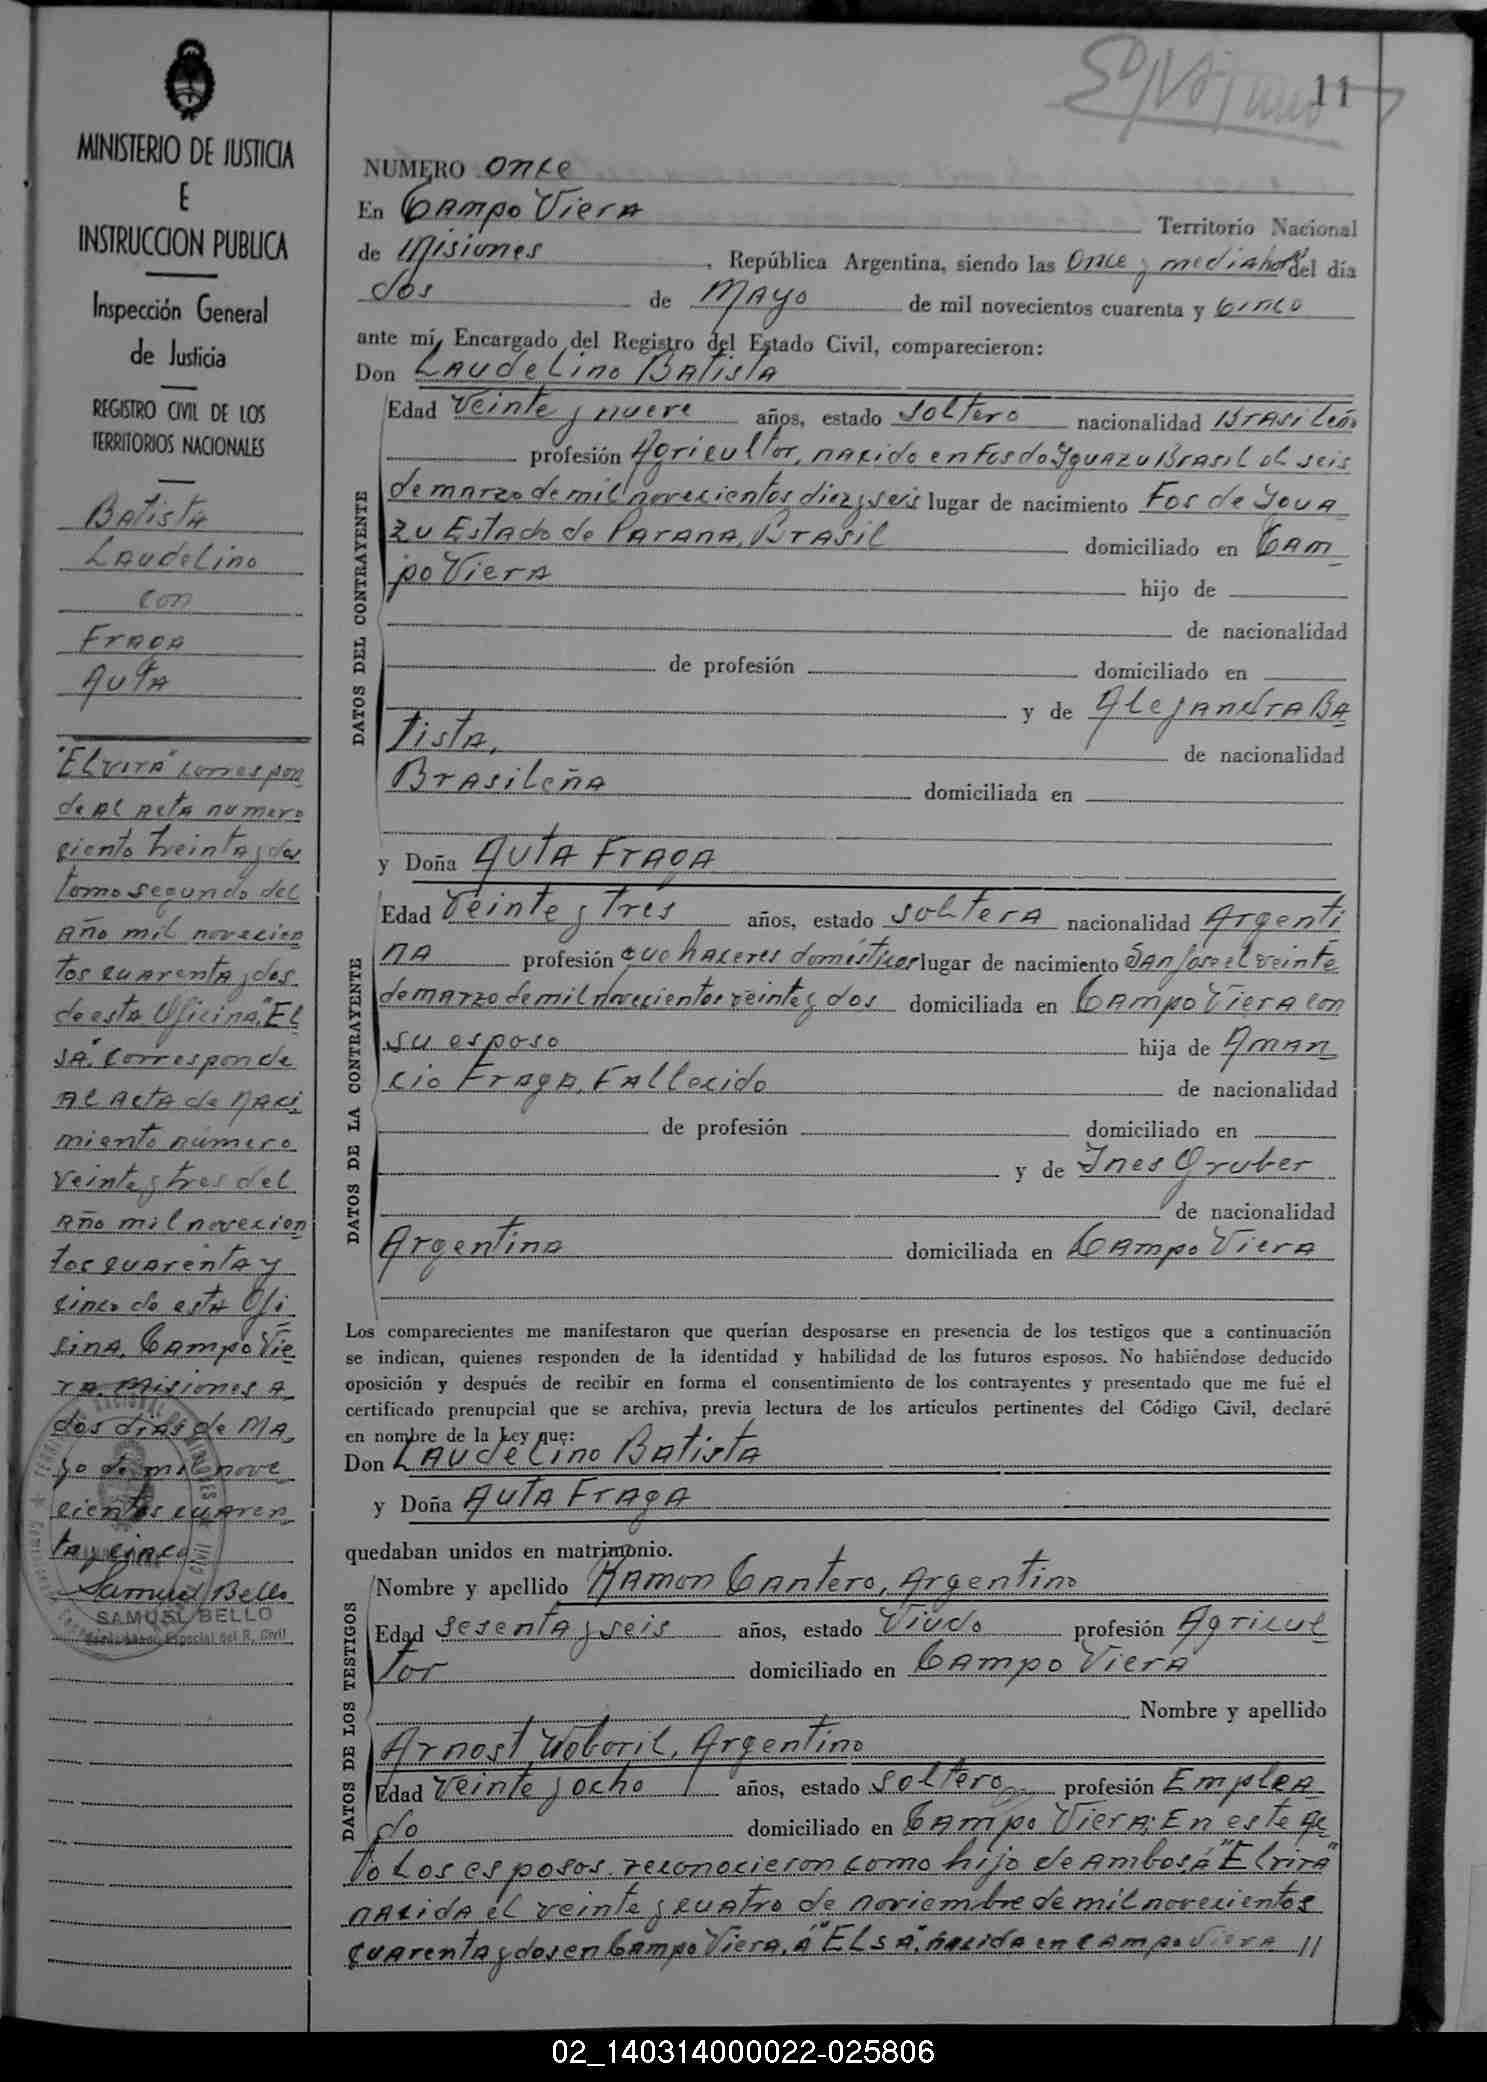 11
MINISTERIO DE JUSTICIA
E
INSTRUCCION PUBLICA
Inspección General
de Justicia
REGISTRO CIVIL DE LOS
TERRITORIOS NACIONALES
Batista
Laudelino
con
Fraga
Auta
"Elvira" correspon
de al acta numero
ciento treinta y dos
tomo segundo del
año mil novecien
tos cuarenta y dos
de esta Oficina, "El
sa" corresponde
al acta de naci
miento número
veinte y tres del
año mil novecien
tos cuarenta y
cinco de esta Ofi
cina, Campo Vie
ra Misiones a
dos dias de Ma
yo de mil nove
cientos cuaren
ta y cinco
Samuel Bello
SAMUEL BELLO
Especial del R. Civil
NUMERO once
En Campo Viera Territorio Nacional
de Misiones, República Argentina, siendo las Once y media horas del día
dos de Mayo de mil novecientos cuarenta y cinco
ante mí, Encargado del Registro del Estado Civil, comparecieron:
Don Laudelino Batista
DATOS DEL CONTRAYENTE
Edad Veinte y nueve años, estado soltero nacionalidad Brasileño
profesión Agricultor, nacido en Fos do Yguazu Brasil el seis
de marzo de mil novecientos diez y seis lugar de nacimiento Fos de Ygua
zu Estado de Parana, Brasil domiciliado en Cam
po Viera hijo de
de nacionalidad
de profesión domiciliado en
y de Alejandra Ba
tista, de nacionalidad
Brasileña domiciliada en
y Doña Auta Fraga
DATOS DE LA CONTRAYENTE
Edad Veinte y tres años, estado soltera nacionalidad Argenti
na profesión que haceres domésticos lugar de nacimiento San Jose el veinte
de marzo de mil novecientos veinte y dos domiciliada en Campo Viera con
su esposo hija de Aman
cio Fraga, Fallecido de nacionalidad
de profesión domiciliado en
y de Ines Gruber
de nacionalidad
Argentina domiciliada en Campo Viera
Los comparecientes me manifestaron que querían desposarse en presencia de los testigos que a continuación
se indican, quienes responden de la identidad y habilidad de los futuros esposos. No habiéndose deducido
oposición y después de recibir en forma el consentimiento de los contrayentes y presentado que me fué el
certificado prenupcial que se archiva, previa lectura de los artículos pertinentes del Código Civil, declaré
en nombre de la Ley que:
Don Laudelino Batista
y Doña Auta Fraga
quedaban unidos en matrimonio.
DATOS DE LOS TESTIGOS
Nombre y apellido Ramon Cantero, Argentino
Edad sesenta y seis años, estado Viudo profesión Agricul
tor domiciliado en Campo Viera
Nombre y apellido
Arnost Woboril, Argentino
Edad veinte y ocho años, estado soltero profesión Emplea
do domiciliado en Campo Viera; En este ac
to los esposos reconocieron como hijo de ambos a "Elvira"
nacida el veinte y cuatro de noviembre de mil novecientos
cuarenta y dos en Campo Viera, a "Elsa", nacida en Campo Viera //
02_140314000022-025806